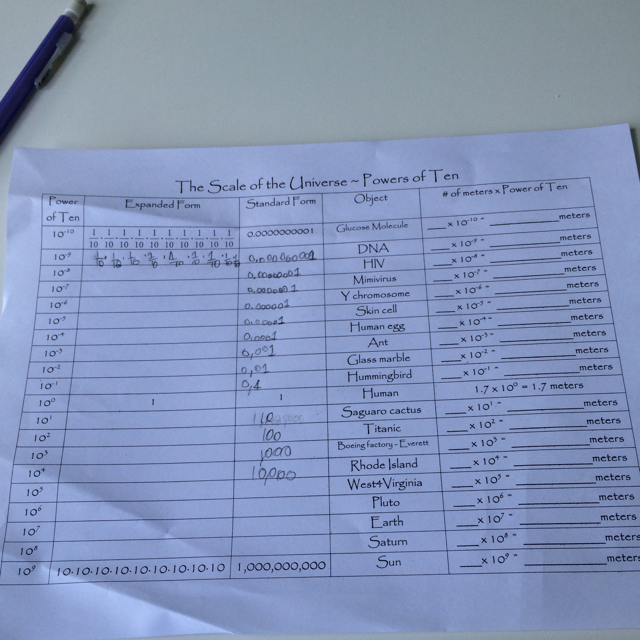 The Scale of the Universe ~ Powers of Ten
Power of Ten Expanded Form Standard Form Object # of meters x Power of Ten
10⁻¹⁰ 1/10 · 1/10 · 1/10 · 1/10 · 1/10 · 1/10 · 1/10 · 1/10 · 1/10 · 1/10 0.0000000001 Glucose Molecule ___x 10⁻¹⁰ = ___meters
10⁻⁹ 1/10 · 1/10 · 1/10 · 1/10 · 1/10 · 1/10 · 1/10 · 1/10 · 1/10 DNA ___x 10⁻⁹ = ___meters
10⁻⁸ HIV ___x 10⁻⁸ = ___meters
10⁻⁷ Mimivirus ___x 10⁻⁷ = ___meters
10⁻⁶ Y chromosome ___x 10⁻⁶ = ___meters
10⁻⁵ Skin cell ___x 10⁻⁵ = ___meters
10⁻⁴ 0.0001 Human egg ___x 10⁻⁴ = ___meters
10⁻³ 0,001 Ant ___x 10⁻³ = ___meters
10⁻² 0,01 Glass marble ___x 10⁻² = ___meters
10⁻¹ 0,1 Hummingbird ___x 10⁻¹ = ___meters
10⁰ 1 1 Human 1.7 x 10⁰ = 1.7 meters
10¹ Saguaro cactus ___x 10¹ = ___meters
10² 100 Titanic ___x 10² = ___meters
10³ 1,000 Boeing factory - Everett ___x 10³ = ___meters
10⁴ 10,000 Rhode Island ___x 10⁴ = ___meters
10⁵ West Virginia ___x 10⁵ = ___meters
10⁶ Pluto ___x 10⁶ = ___meters
10⁷ Earth ___x 10⁷ = ___meters
10⁸ Saturn ___x 10⁸ = ___meters
10⁹ 10·10·10·10·10·10·10·10·10 1,000,000,000 Sun ___x 10⁹ = ___meters